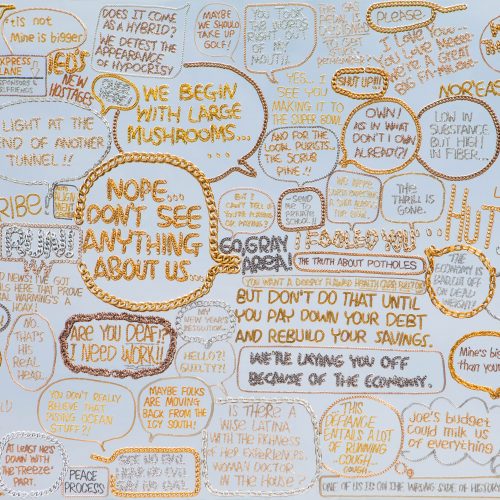 it's not
Mine is bigger
EXPRESS
LANE
GIRLFRIENDS
NEW
HOSTAGES
DOES IT COME
AS A HYBRID?
WE DETEST THE
APPEARANCE
OF HYPOCRISY
MAYBE
WE SHOULD
TAKE UP
GOLF!
YOU TOOK
THE WORDS
RIGHT OUT
OF MY
MOUTH.
THE GAG
DETAIL IS
DESIGNED
TO GET
PLEASE
I Love You...
You Love Me...
We're A Great
Big Fat
SHUT UP!!!
NOR'EAS
WE BEGIN
WITH LARGE
MUSHROOMS...
YES... I
SEE YOU
MAKING IT TO
THE SUPER BOWL.
AND FOR THE
LOCAL PURISTS...
THE SCRUB
PINE.!!
OWN!
AS IN WHAT
DON'T I OWN
ALREADY?!
LOW IN
SUBSTANCE
BUT HIGH
IN FIBER...
LIGHT AT THE
END OF ANOTHER
TUNNEL!!
NOPE...
DON'T SEE
ANYTHING
ABOUT US.
RIBE!
BUT I
CAN'T TELL IF
YOU'RE PLAYING
OR PAYING?
SEND ME
TO
PRIVATE
SCHOOL
THE
THRILL IS
GONE.
HUT
GO, GRAY
AREA!
I FOOLED YOU
THE TRUTH ABOUT POTHOLES
THE
ECONOMY IS
BAILED OUT
OR DEAD
YOU WANT A DEEPLY FLAWED HEALTH CARE REFORM
BUT DON'T DO THAT UNTIL
YOU PAY DOWN YOUR DEBT
AND REBUILD YOUR SAVINGS.
NEWS! I'VE GOT
HERE THAT PROVE
WARMING'S A
HOAX!
NO.
THAT'S
HIS
REAL
HEAD.
ARE YOU DEAF!?
I NEED WORK!!
MY
NEW YEAR'S
RESOLUTION...
HELLO?!
GUILTY?!
WE'RE LAYING YOU OFF
BECAUSE OF THE ECONOMY.
Mine's big
than your
YOU DON'T REALLY
BELIEVE THAT
RISING OCEAN
STUFF?!
MAYBE FOLKS
ARE MOVING
BACK FROM THE
ICY SOUTH!
IS THERE A
WISE LATINA
WITH THE RICHNESS
OF HER EXPERIENCES
WOMAN DOCTOR
IN THE HOUSE?
THIS
DEFIANCE
ENTAILS A LOT
OF RUNNING
COUGH...
COUGH...
Joe's budget
could milk us
of everything
AT LEAST HE'S
DOWN WITH
THE 'FREEZE'
PART.
PEACE
PROCESS
SEE NO EVIL
ONE OF US IS ON THE WRONG SIDE OF HISTOR